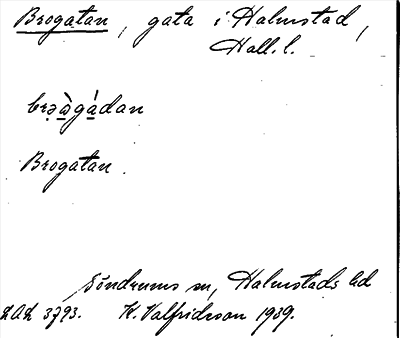 Brogatan, gata i Halmstad,
Hall. l.
brə̣ὼgá̱dan
Brogatan
Söndrums sn, Halmstads hd
LAL 3793. K. Valfridsson 1939.